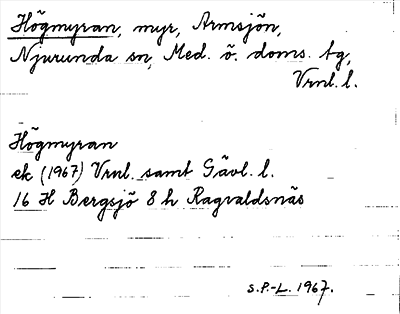 Högmyran, myr, Armsjön,
Njurunda sn, Med. ö. doms. tg,
Vrnl. l.
Högmyran
ek (1967) Vrnl. samt Gävl. l.
16 H Bergsjö 8 h Ragvaldsnäs
S.P.-L. 1967.